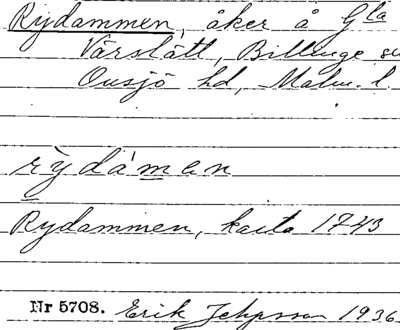 Rydammen, åker å Gla
Vårslätt, Billinge sn
Onsjö hd, Malm. l.
rỳdámen
Rydammen, karta 1743
Nr 5708. Erik Jeppsson 1936.